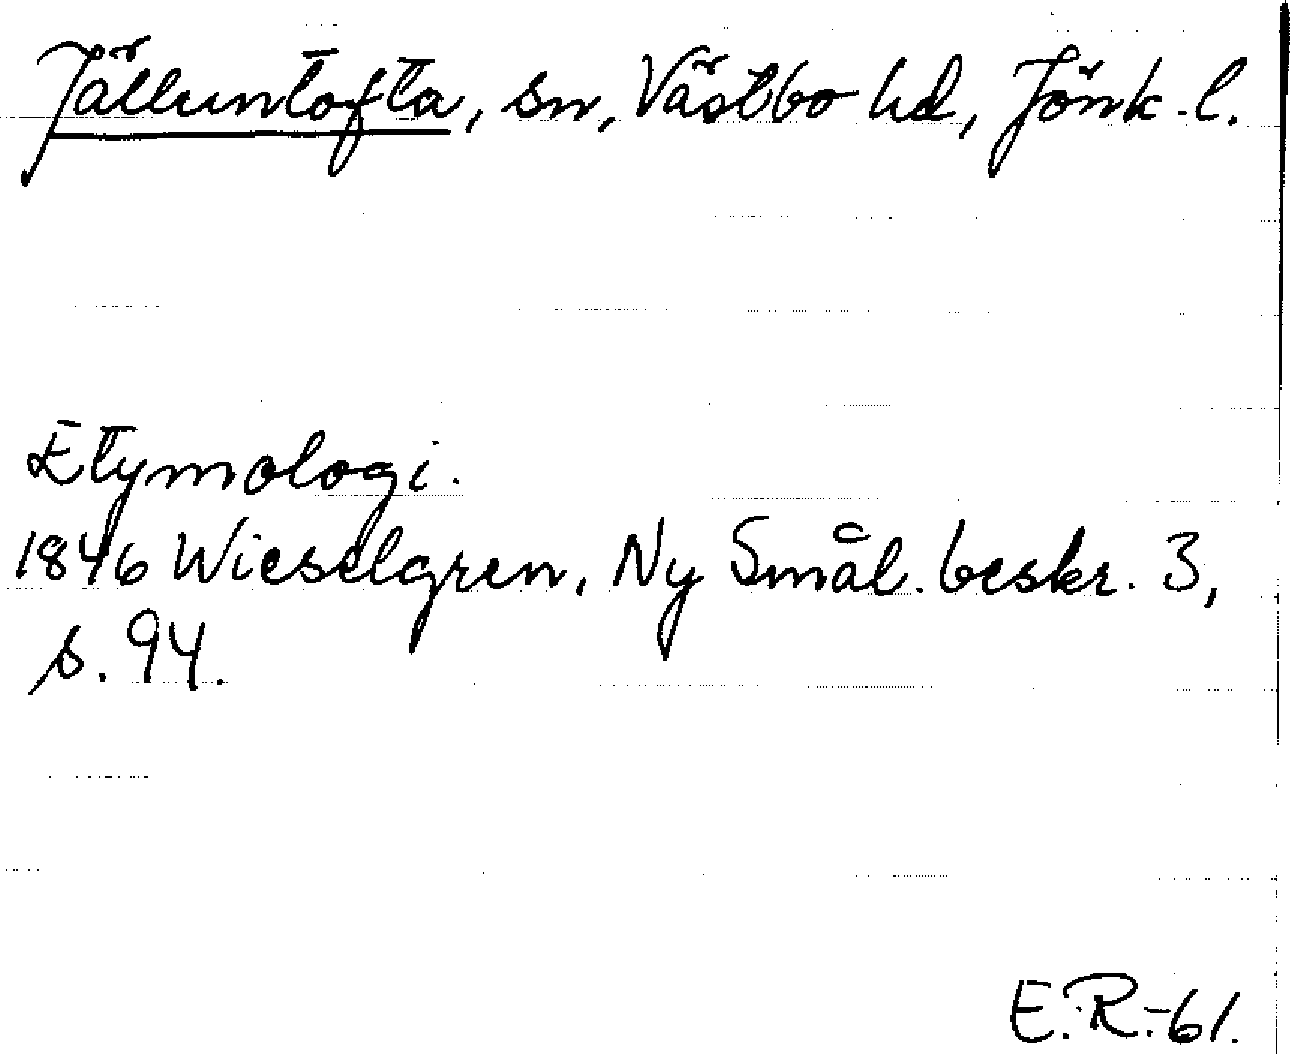 Jälluntofta, sn, Västbo hd, Jönk. l.
Etymologi.
1846 Wieselgren, Ny Smål. beskr. 3,
s. 94.
E.R.-61.